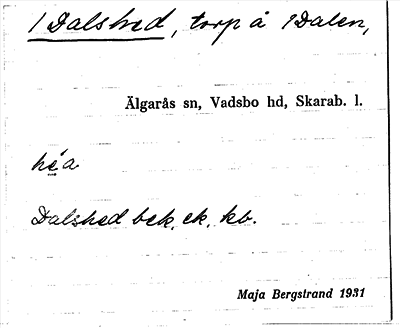 /Dalshed, torp å /Dalen,
Älgarås sn, Vadsbo hd, Skarab. l.
hé̱a
Dalshed bek, ek. kb.
Maja Bergstrand 1931